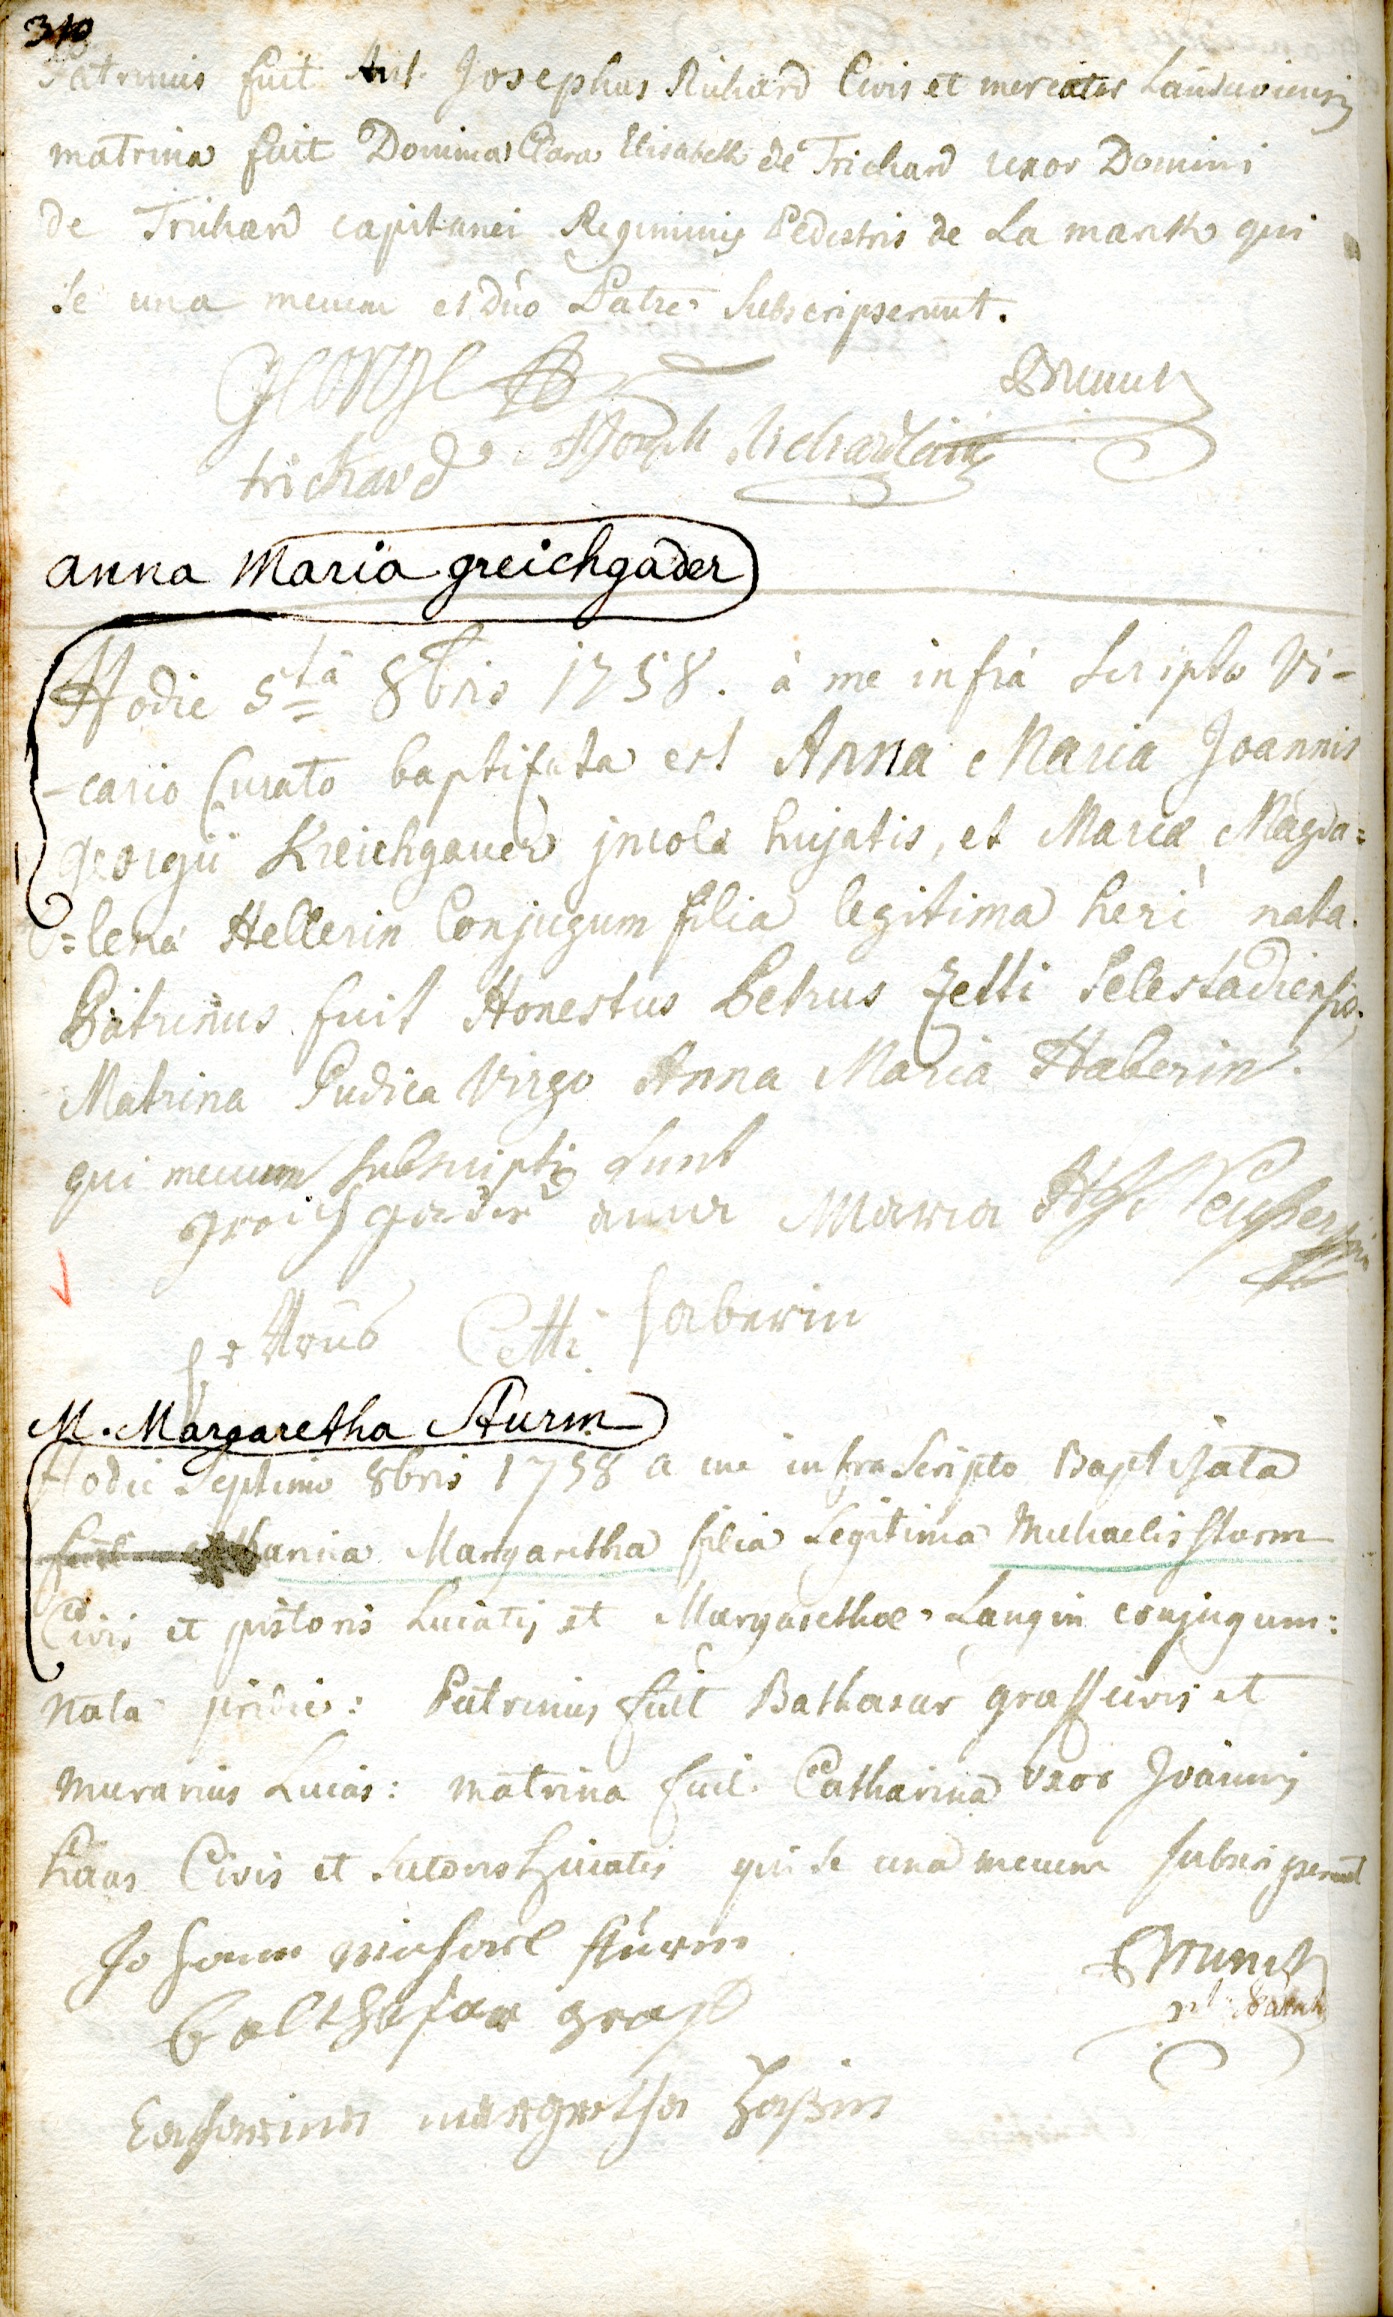 310
Patrinus fuit Ant. Josephus Richard Civis et mercator Landaviensis
matrina fuit Domina Clara Elisabeth de Trichard uxor Domini
de Trichard capitanei Regiminis Pedestris de La marck qui
se una mecum et Dno Patre subscripserunt.
George
trichard Joseph Richard
anna Maria greichgader
Hodie 5tâ 8bris 1758. à me infrà scripto Vi-
-cario Curato baptisata est Anna Maria Joannis
georgii Kreichgauer jncolæ hujatis, et Mariæ Magda=
=lenæ Hellerin Conjugum filia legitima heri nata.
Patrinus fuit Honestus Petrus Zetti Selestadiensis,
Matrina Pudica Virgo Anna Maria Haberin.
qui mecum subscripti sunt
greichgader anna Maria
pettrus Cetti haberin
M. Margaretha Sturm
Hodie septimo 8bris 1758 a me infra scripto Baptisata
Margaretha filia Legitima Michaelis Sturm
Civis et pistoris huiatis et Margarethæ Langin conjugum:
nata pridie: Patrinus fuit Balthasar graff civis et
murarius huias: matrina fuit Catharina uxor Joannis
haas Civis et sutoris huiatis qui se una mecum subscripserunt
Johann michael stürm
balthasar graff
Catharina margretha haßin